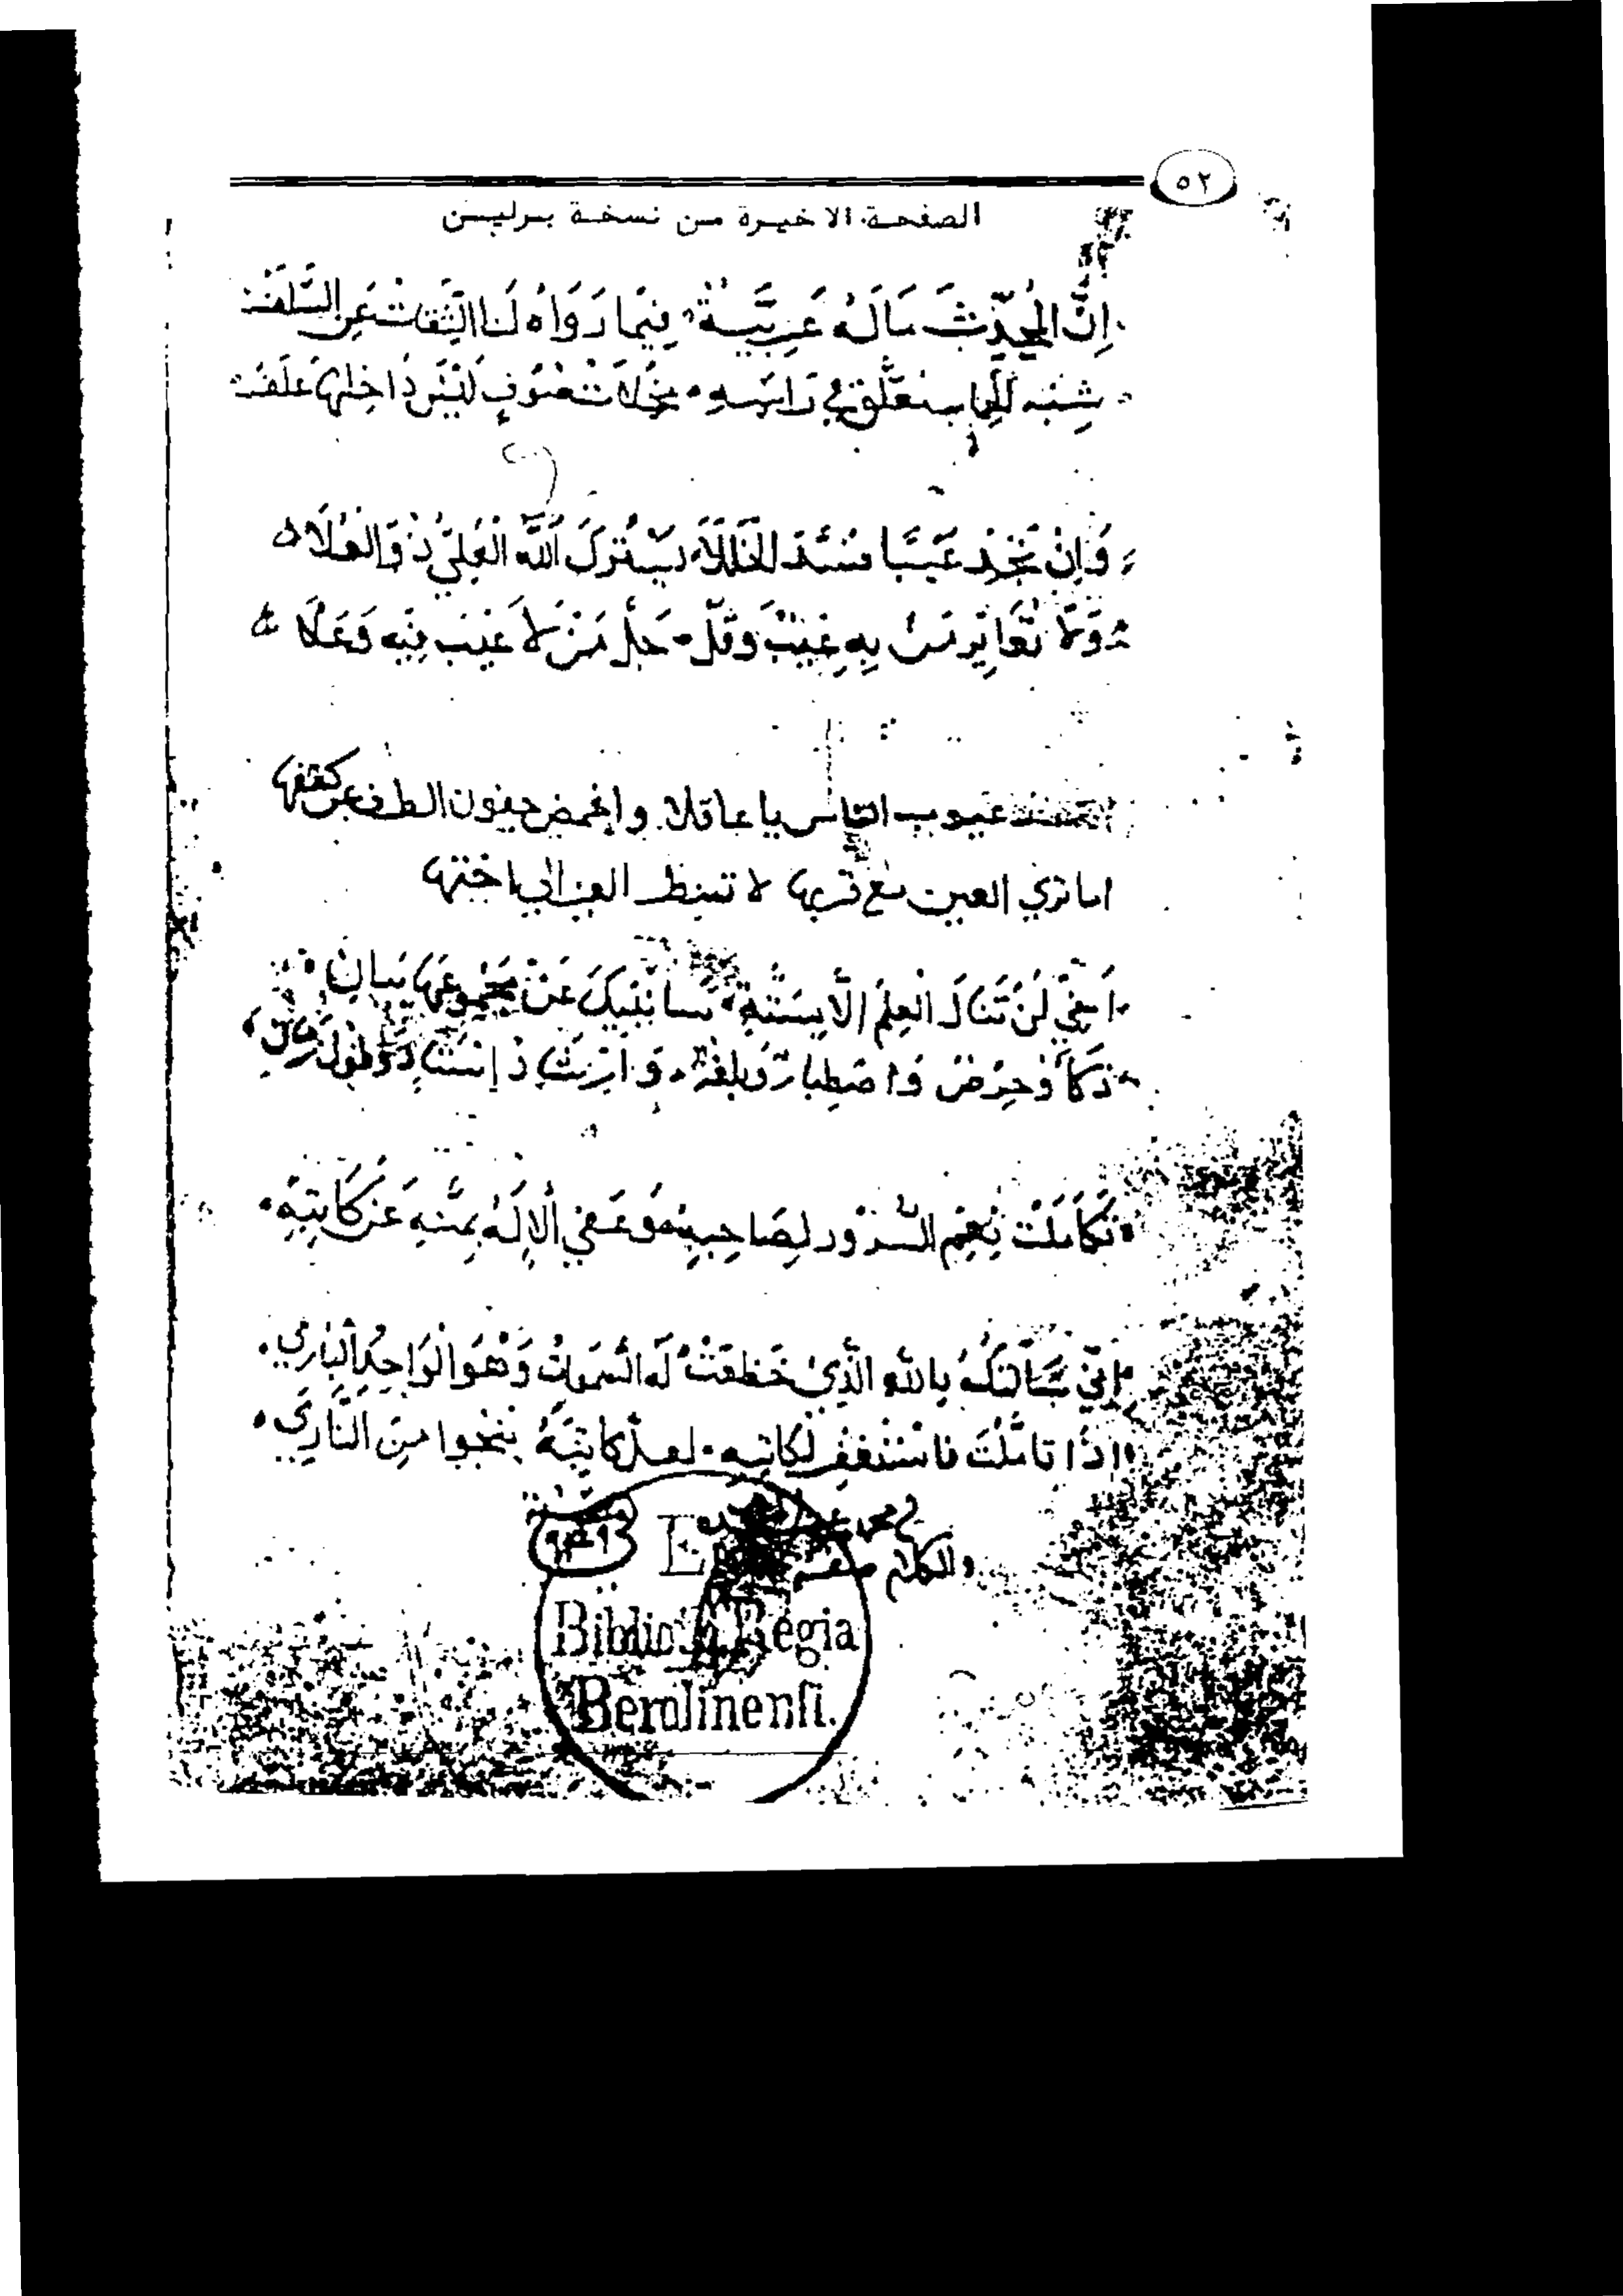 ٥٢
الصفحة الاخيرة من نسخة برلين
اِنَّ المُحَدِّثَ مَالَهُ عَرَبِيَّةٌ فِيمَا رَوَاهُ لَنَا الثِّقَاتُ عَنِ السَّلَفْ
شِبْه تَعَلَّق فِي رَاسِهِ مِخْلَاتُ صُوفٍ لَيْسَ دَاخِلهَا عَلَفْ
وَاِنْ تَجِد عَيْبًا فَسُدَّ الخَلَلَا يَسْتُركَ اللهُ الْعَلِيُّ ذُو العُلَا
وَلَا تُعَايِر مَنْ بِهِ عَيْبٌ وَقُل جَلَّ مَنْ لَا عَيْبَ فِيهِ وَعَلَا
عيوب الناس يا عاقلا واغمض جفون الطرف عن كشفها
اما تري العين مع قربها لا تنظر العين الي اختها
اَخِي لَنْ تَنَالَ الْعِلْمَ اِلَّا بِسِتَّةٍ سَأُنْبِيكَ عَنْ مَجْمُوعِهَا بِبَيَانِ
ذَكَاءٌ وَحِرْصٌ وَاصْطِبَارٌ وَبُلْغَةٌ وَاِرْشَادُ اُسْتَادٍ وَطُولُ زَمَانِ
تَكَامَلَتْ نِعَمُ السُّرُورِ لِصَاحِبِهِ وَعَفِي الْاِلَهُ بِمَنِّهِ عَنْ كَاتِبِهِ
اِنِّي سَاَلْتُكَ بِاللهِ الَّذِي خَضَعَتْ لَهُ السَّمَوَاتُ وَهْوَ الْوَاحِدُ الْبَارِي
اِذَا تَامَّلْتَ فَاسْتَغْفِرْ لِكَاتِبِهِ لَعَلَّ كَاتِبَهُ يَنْجُوا مِنَ النَّارِي
E
Biblioth. Regia
Berolinensi.